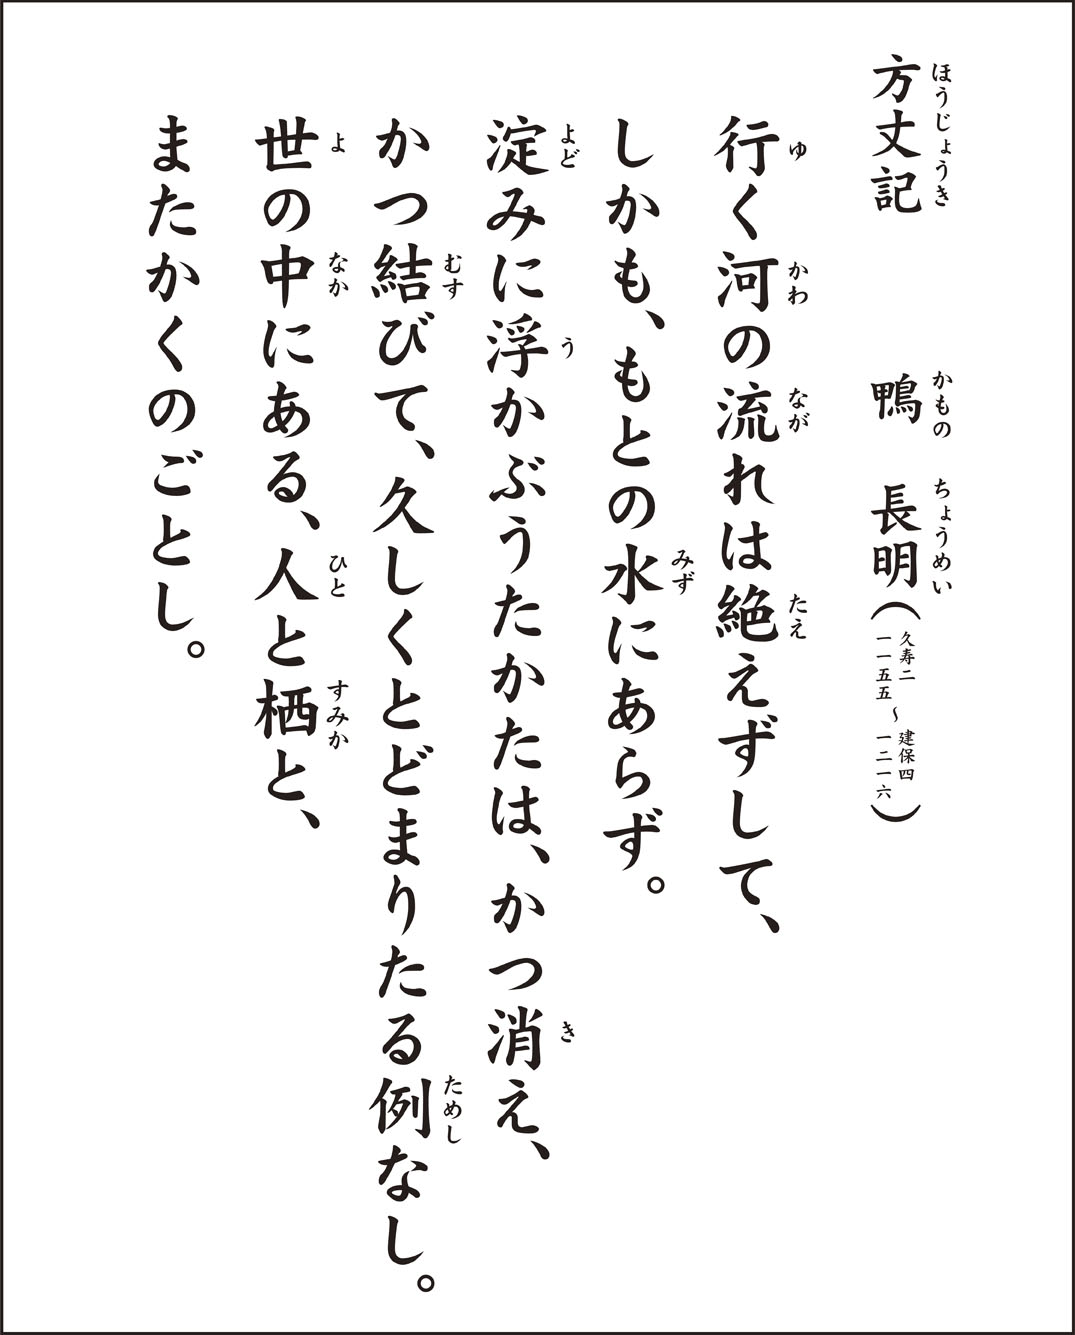 方丈記 鴨 長明(久寿二 一一五五 〜 建保四 一二一六)
ほうじょうき かもの ちょうめい
行く河の流れは絶えずして、
ゆ かわ なが たえ
しかも、もとの水にあらず。
みず
淀みに浮かぶうたかたは、かつ消え、
よど う き
かつ結びて、久しくとどまりたる例なし。
むす ためし
世の中にある、人と栖と、
よ なか ひと すみか
またかくのごとし。